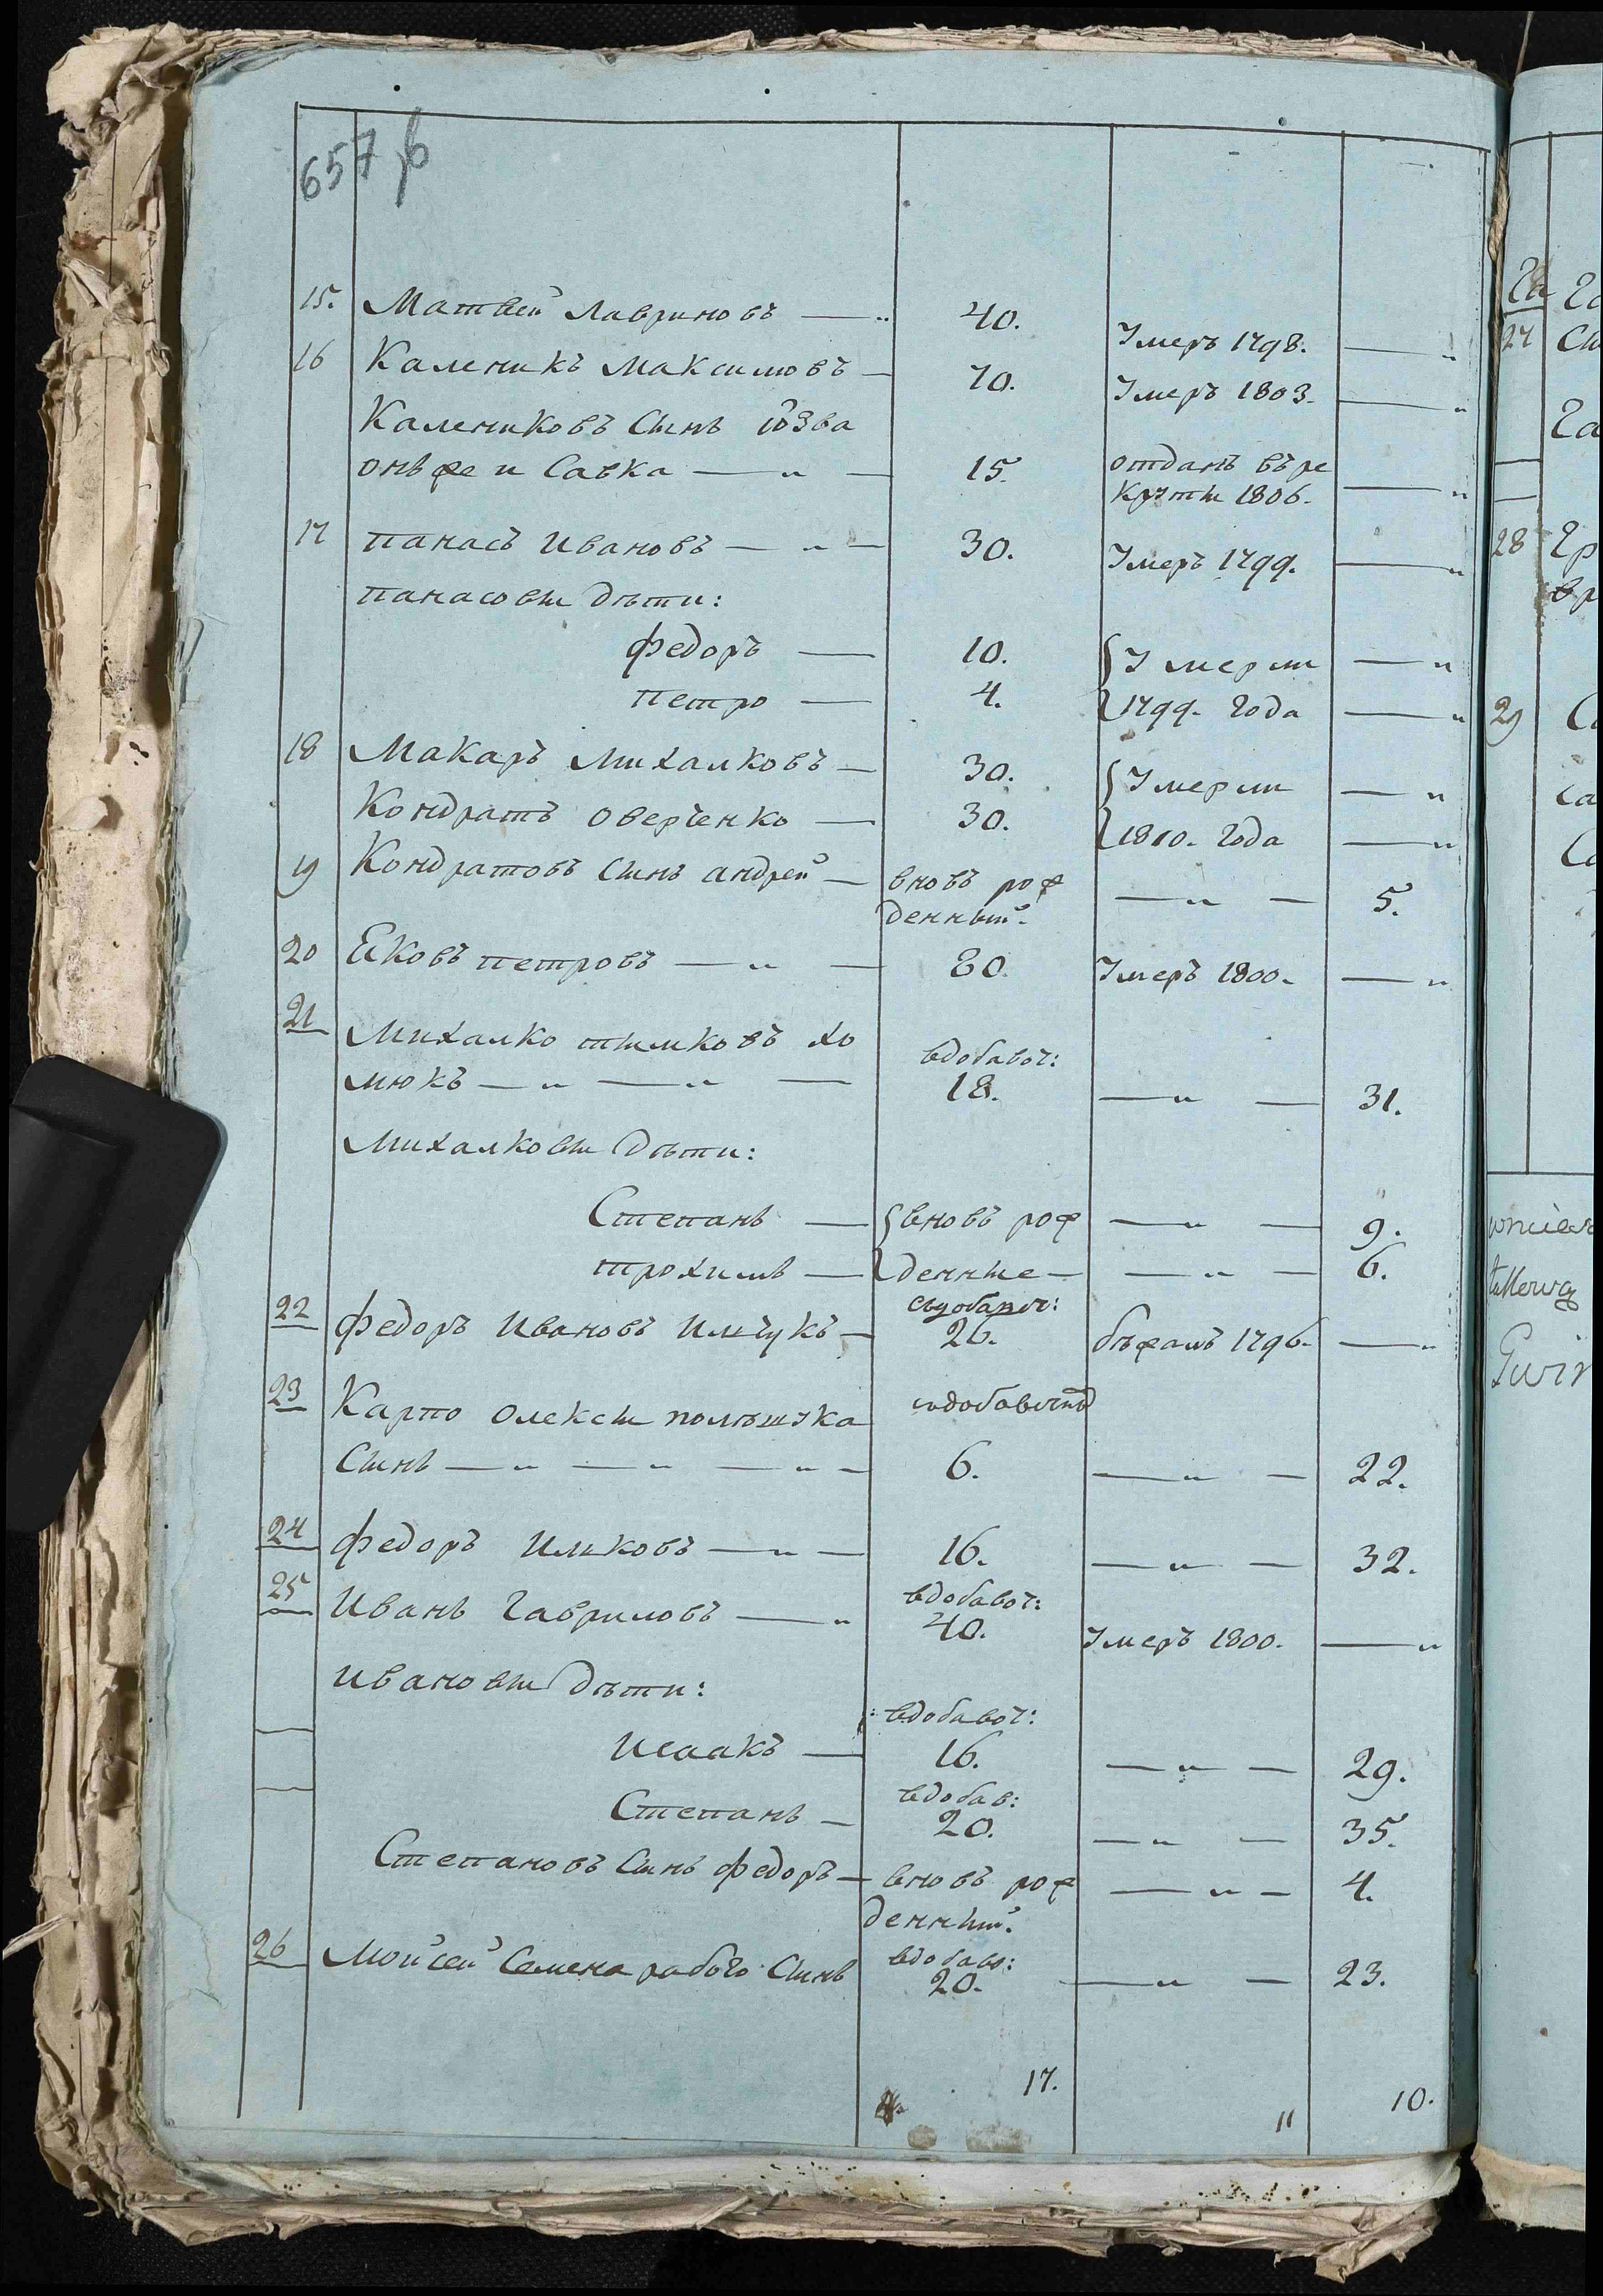 657 об
15. Матвей Лавриновъ — „ 40. Умеръ 1798. — „
16 Каленикъ Максимовъ — 70. Умеръ 1803. — „
Калениковъ Сынъ юзва
онъ же и Савка — „ — 15. отданъ въ ре
круты 1806. — „
17 панасъ Ивановъ — „ — 30. Умеръ 1799. — „
панасовы дѣти:
федоръ — 10. Умерли — „
петро — 4. 1799. года — „
18 Макаръ Михалковъ — 30. Умерли — „
Кондратъ оверченко — 30. 1810. года — „
19 Кондратовъ Сынъ андрей — вновь рож — „ — 5.
денный.
20 Яковъ петровъ — „ — 80. Умеръ 1800. — „
21 Михалко тымковъ хо вдобавоч:
мюкъ — „ — „ — 18. — „ — 31.
Михалковы дѣти:
Степанъ — вновь рож — „ — 9.
трохимъ — денные — — „ — 6.
22 федоръ Ивановъ Илчукъ — 26. бѣжалъ 1796. — „
23 Карпо олексы
Сынъ — „ — „ — „ — 6. — „ — 22.
24 федоръ Ильковъ — „ — 16. — „ — 32.
25 Иванъ гавриловъ — „ вдобавоч:
40. Умеръ 1800. — „
Ивановы дѣти:
вдобавоч:
Исаакъ — 16. — „ — 29.
вдобав:
Степанъ — 20. — „ — 35.
Степановъ Сынъ федоръ — вновь рож — „ — 4.
денный.
26 Мойсей Семена рабого Сынъ вдобаво:
20. — „ — 23.
17. 11 10.
27
28
29